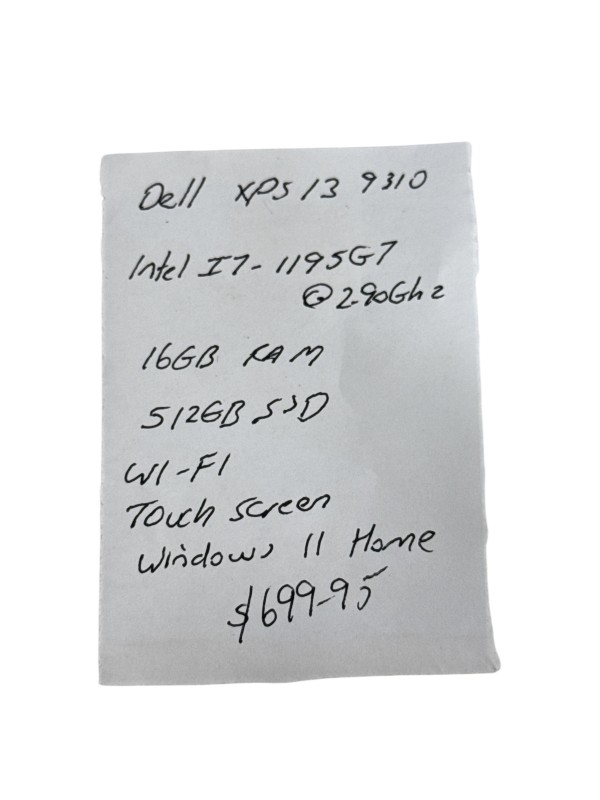 Dell XPS 13 9310
Intel I7-1195G7
@ 2.90Ghz
16GB RAM
512GB SSD
WI-FI
Touch Screen
Windows 11 Home
$699-95